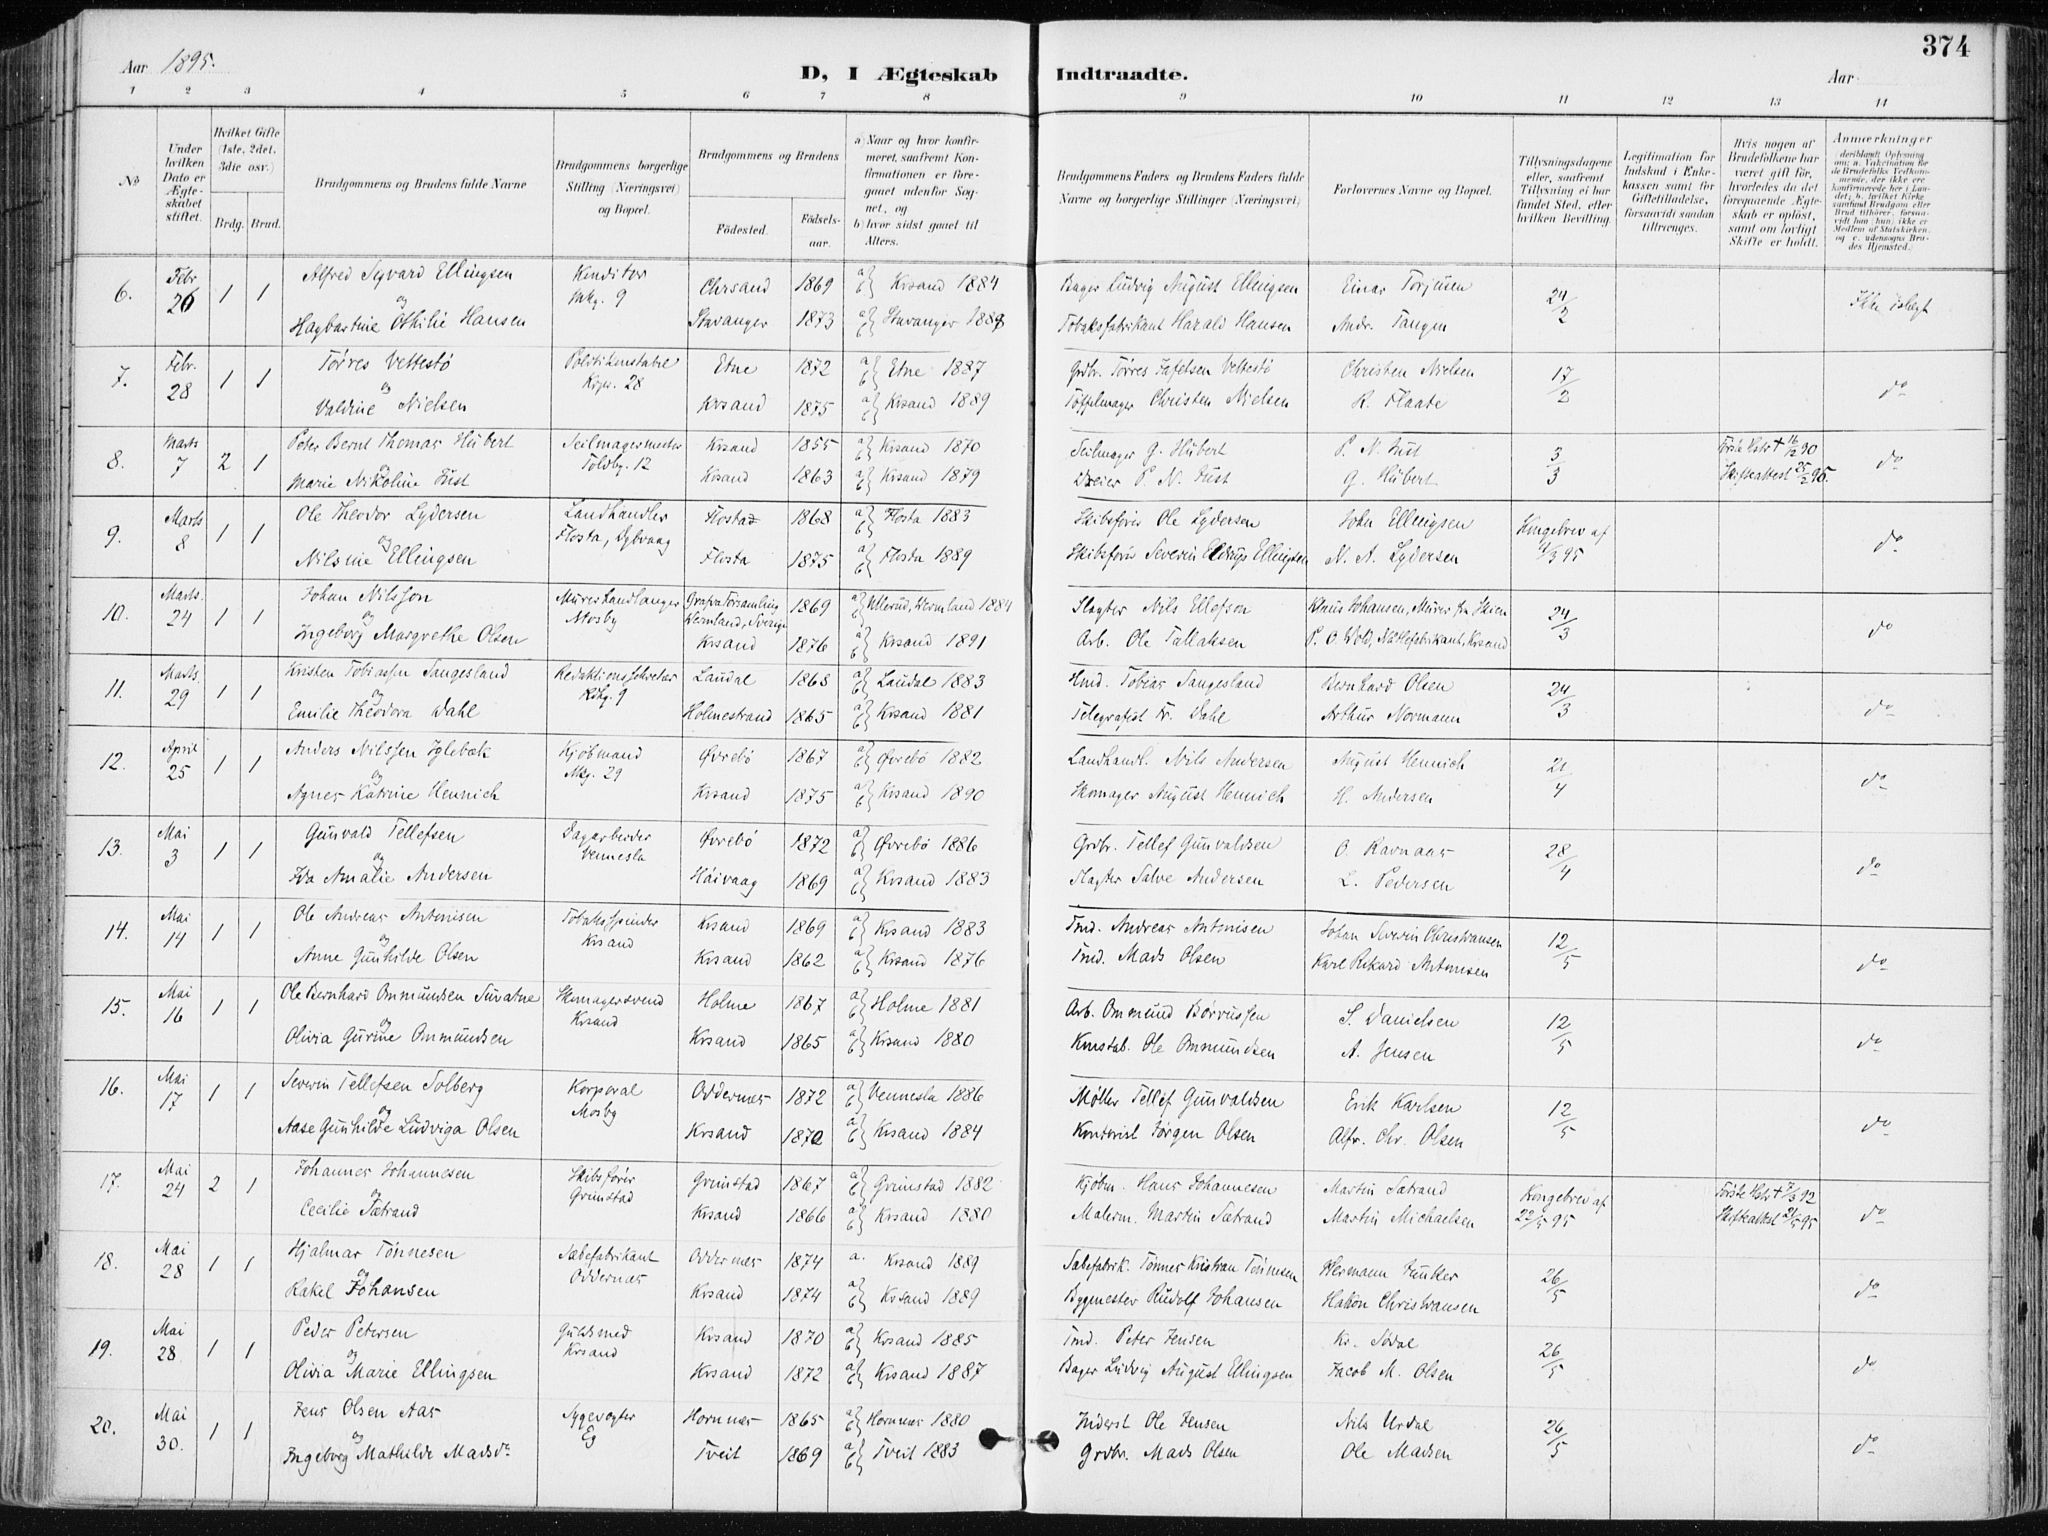 374
Aar 1895.
D, I Ægteskab Indtraadte.
Aar
1 2 3 4 5 6 7 8 9 10 11 12 13 14
No.
Under hvilken Dato er Ægteskabet stiftet.
Hvilket Gifte (1ste, 2det, 3die osv.)
Brdg. Brud.
Brudgommens og Brudens fulde Navne
Brudgommens borgerlige Stilling (Næringsvei) og Bopæl.
Brudgommens og Brudens
Födested. Födsels-aar.
a) Naar og hvor konfirmeret, saafremt Konfirmationen er foregaaet udenfor Sognet, og
b) hvor sidst gaaet til Alters.
Brudgommens Faders og Brudens Faders fulde Navne og borgerlige Stillinger (Næringsvei)
Forlovernes Navne og Bopæl.
Tillysningsdagene eller, saafremt Tillysning ei har fundet Sted, efter hvilken Bevilling
Legitimation for Indskud i Enkekassen samt for Giftetilladelse, forsaavidt saadan tiltrænges.
Hvis nogen af Brudefolkene har været gift før, hvorledes da det foregaaende Ægteskab er opløst, samt om lovligt Skifte er holdt.
Anmærkninger
6. Febr 26 1 1 Alfred Sigvard Ellingsen Konditor Chrsand 1869 a) b) Krsand 1884 Bager Ludvig August Ellingsen Einar Torjusen 24/2 Ikke beslægt
og 9
Hagbartine Othilie Hansen Stavanger 1873 a) b) Stavanger 1888 Tobaksfabrikant Harald Hansen Andr. Tangen
7. Febr. 28 1 1 Tørres Vettestø Politikonstabel Etne 1872 a) b) Etne 1887 Grdbr. Tørres Vettestø Christen Nielsen 17/2 do
og 28
Valdine Nielsen Krsand 1875 a) b) Krsand 1889 Tøffelmager Christen Nielsen R. Flaate
8. Marts 7 2 1 Peter Bernt Thomas Hübert Seilmagermester Krsand 1855 a) b) Krsand 1870 Seilmager G. Hübert P. N. Fust 3/3 Første Hstr † 16/2 90 do
og Toldbg. 12
Marie Nikoline Fust Krsand 1863 a) b) Krsand 1879 Dreier P. N. Fust G. Hübert Skifteattest 25/2 95.
9. Marts 8 1 1 Ole Theodor Lydersen Landhandler Flosta 1868 a) b) Flosta 1883 Skibsfører Ole Lydersen John Ellingsen Kongebrev af do
og Flosta,
Nilsine Ellingsen Flosta 1875 a) b) Flosta 1889 Skibsfører Severin Ellingsen N. A. Lydersen 4/3 95
10. Marts. 24 1 1 Johan Nilsson Murerhandlanger Grafva Forsamling 1869 a) b) Ullerud, Wermland 1884 Slagter Nils Ellefsen Klaus Johansen, Murer fra Skien 24/3 do
og Mosby Wermland, Sverige
Ingeborg Margrethe Olsen Krsand 1876 a) b) Krsand 1891 Arb. Ole Tallaksen P. O. Wold, Krsand
11. Marts. 29 1 1 Kristen Tobiassen Saugesland Redaktionssekretær Laudal 1868 a) b) Laudal 1883 Gmd. Tobias Saugesland Bernhard Olsen 24/3 do
og 9
Emilie Theodora Dahl Holmestrand 1865 a) b) Krsand 1881 Telegrafist Fr. Dahl Arthur Normann
12. April 25 1 1 Anders Nilssen Iglebæk Kjøbmand Øvrebø 1867 a) b) Øvrebø 1882 Landhandl. Nils Andersen August Hennich 21/4 do
og Mkg. 29
Agnes Katrine Hennich Krsand 1875 a) b) Krsand 1890 Skomager August Hennich H. Andersen
13. Mai 3 1 1 Gunvald Tellefsen Dagarbeider Øvrebø 1872 a) b) Øvrebø 1886 Grdbr. Tellef Gunvaldsen O. Ravnaas 28/4 do
og Vennesla
Ida Amalie Andersen Høivaag 1869 a) b) Krsand 1883 Slagter Salve Andersen L. Pedersen
14. Mai 14 1 1 Ole Andreas Antonisen Tobaksspinder Krsand 1869 a) b) Krsand 1883 Tmd. Andreas Antonisen Johan Severin Christiansen 12/5 do
og Krsand
Anne Gunhilde Olsen Krsand 1862 a) b) Krsand 1876 Tmd. Mads Olsen Karl Rikard Antonisen
15. Mai 16 1 1 Ole Bernhard Ommundsen Suvatne Skomagersvend Holme 1867 a) b) Holme 1881 Arb. Ommund Børrussen S. Danielsen 12/5 do
og Krsand
Olivia Gurine Ommundsen Krsand 1865 a) b) Krsand 1880 Konstab. Ole Ommundsen A. Jensen
16. Mai 17 1 1 Severin Tellefsen Solberg Korporal Oddernes 1872 a) b) Vennesla 1886 Møller Tellef Gunvaldsen Erik Karlsen 12/5 do
og Mosby
Aase Gunhilde Ludviga Olsen Krsand 1870 a) b) Krsand 1884 Kontorist Jørgen Olsen Alfr. Chr. Olsen
17. Mai 24 2 1 Johannes Johannesen Skibsfører Grimstad 1867 a) b) Grimstad 1882 Kjøbm. Hans Johannesen Martin Sætrand Kongebrev af Første Hstr † 7/3 92 do
og Grimstad
Cecilie Sætrand Krsand 1866 a) b) Krsand 1880 Malerm. Martin Sætrand Martin Michaelsen 22/5 95 Skifteattest 21/5 95
18. Mai 28 1 1 Hjalmar Tønnesen Sæbefabrikant Oddernes 1874 a. Krsand 1889 Sæbefabrik. Tønnes Kristian Tønnesen Hermann Junker 26/5 do
og Oddernes
Rakel Johansen Krsand 1874 a) b) Krsand 1889 Bygmester Rudolf Johansen Hakon Christiansen
19. Mai 28 1 1 Peder Petersen Guldsmed Krsand 1870 a) b) Krsand 1885 Tmd. Peter Jensen Kr. Sødal 26/5 do
og Krsand
Olivia Marie Ellingsen Krsand 1872 a) b) Krsand 1887 Bager Ludvig August Ellingsen Jacob M. Olsen
20. Mai 30. 1 1 Jens Olsen Aas Sygevogter Hornnes 1865 a) b) Hornnes 1880 Inderst Ole Jensen Nils Urdal 26/5 do
og Eg
Ingeborg Mathilde Madsdr. Tveit 1869 a) b) Tveit 1883 Grdbr. Mads Olsen Ole Madsen